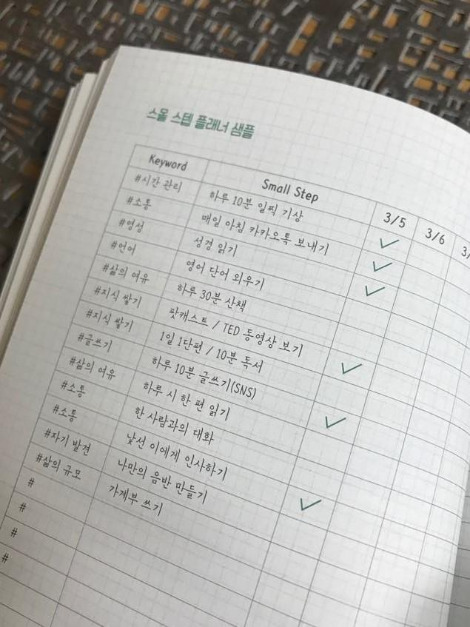 스몰 스텝 플래너 샘플
Keyword Small Step 3/5 3/6
#시간 관리 하루 10분 일찍 기상
#소통 매일 아침 카카오톡 보내기
#영성 성경 읽기
#언어 영어 단어 외우기
#삶의 여유 하루 30분 산책
#지식 쌓기 팟캐스트 / TED 동영상 보기
#지식 쌓기 1일 1단편 / 10분 독서
#글쓰기 하루 10분 글쓰기(SNS)
#삶의 여유 하루 시 한 편 읽기
#소통 한 사람과의 대화
#소통 낯선 이에게 인사하기
#자기 발견 나만의 음반 만들기
#삶의 규모 가계부 쓰기
#
#
#
#